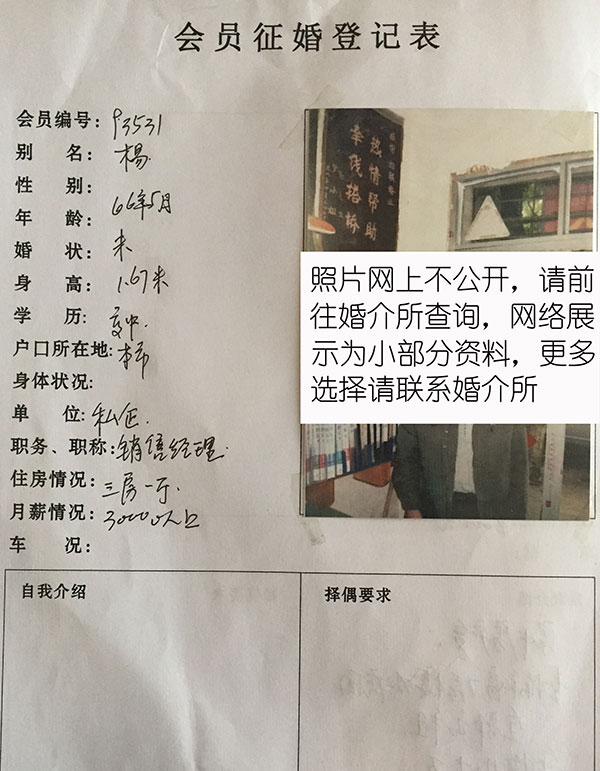 会员征婚登记表
会员编号: 93531
别 名: 楊
性 别:
年 龄: 66年5月
婚 状: 未
身 高: 1.67米
学 历: 高中.
户口所在地: 本市
身体状况:
单 位: 私企.
职务、职称: 销售经理.
住房情况: 三房一厅.
月薪情况: 30000以上
车 况:
热情帮助
牵线搭桥
照片网上不公开，请前
往婚介所查询，网络展
示为小部分资料，更多
选择请联系婚介所
自我介绍
择偶要求